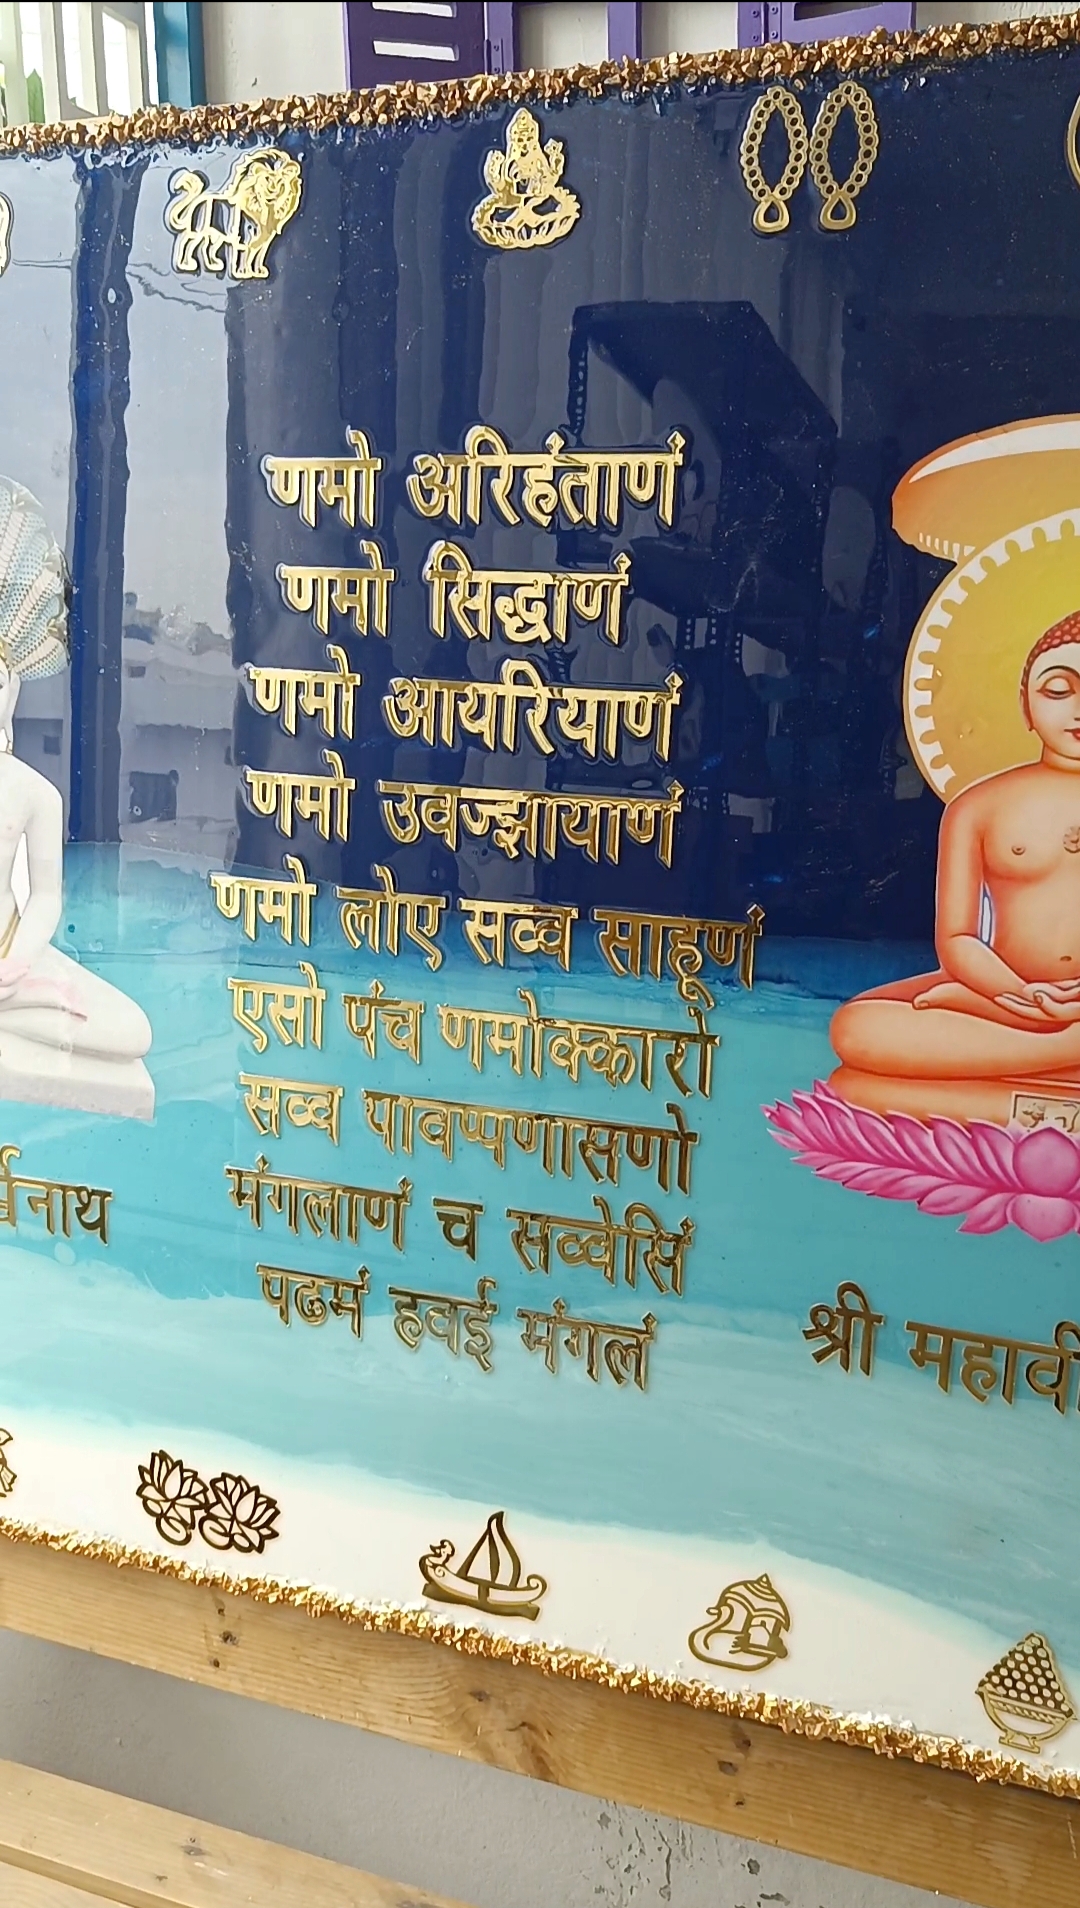 णमो अरिहंताणं
णमो सिद्धाणं
णमो आयरियाणं
णमो उवज्झायाणं
णमो लोए सव्व साहूणं
एसो पंच णमोक्कारो
सव्व पावप्पणासणो
मंगलाणं च सव्वेसिं
पढमं हवई मंगलं
र्श्वनाथ
श्री महावी